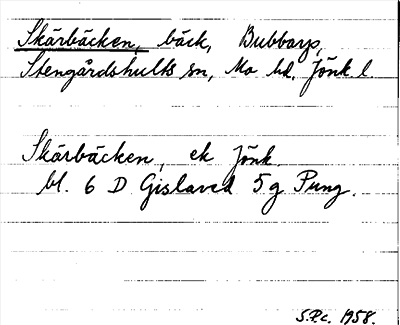 Skärbäcken, bäck, Bubbarp,
Stengårdshults sn, Mo hd, Jönk. l.
Skärbäcken, ek Jönk.
bl. 6 D Gislaved 5 g Pung.
S.P.c. 1958.